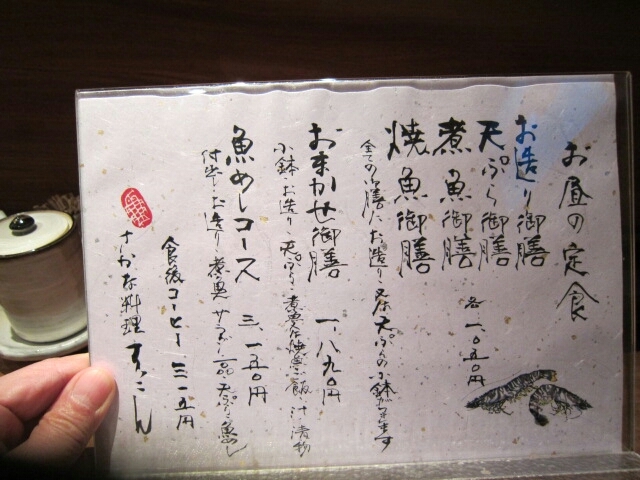 お昼の定食
お造り御膳
天ぷら御膳
煮魚御膳
焼魚御膳
各一、〇五〇円
全ての御膳にお造り又は天ぷらの小鉢が付きます
おまかせ御膳 一、八九〇円
小鉢 お造り 天ぷら 煮魚又は焼魚 ご飯 汁 漬物
魚めしコース 三、一五〇円
付出し お造り 煮魚 サラダ一品 天ぷら 魚めし
食後コーヒー 三一五円
さかな料理